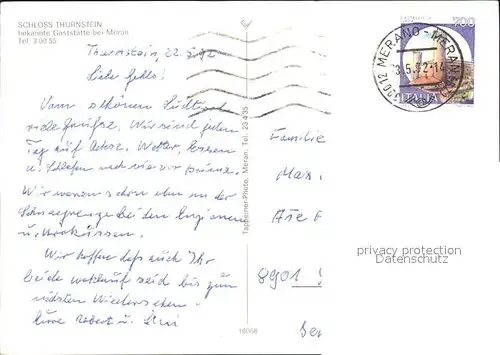 SCHLOSS THURNSTEIN
bekannte Gaststätte bei Meran
Tel. 3 00 55
Thurnstein, 22.5.92
Liebe
Vom schönen Südtirol
viele Grüße. Wir sind jeden
Tag auf Achse. Wetter, Essen
u. Schlafen sind wie vor
Wir waren schon oben an der
Schneegrenze bei den Enzianen
u.
Wir hoffen daß auch Ihr
beide wohlauf seid bis zum
nächsten Wiedersehen
Eure Robert u.
Tappeiner-Photo, Meran, Tel. 23 4 35
MERANO - MERAN
39012
ITALIA
700
Familie
Max
8901
privacy protection
Datenschutz